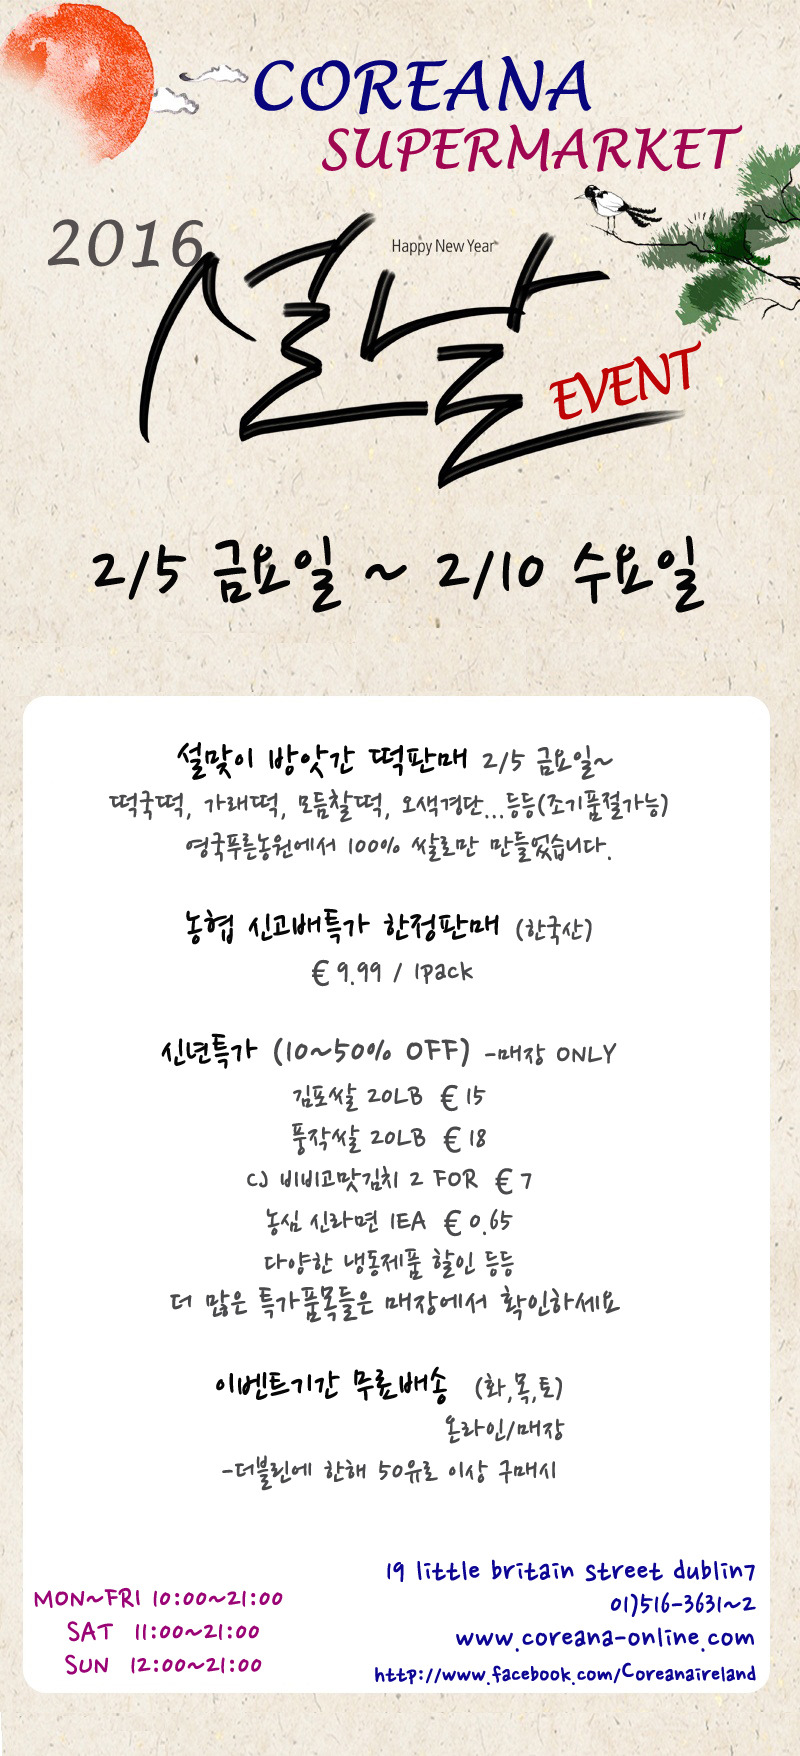 COREANA
SUPERMARKET
2016
Happy New Year
설날
EVENT
2/5 금요일 ~ 2/10 수요일
설맞이 방앗간 떡판매 2/5 금요일~
떡국떡, 가래떡, 모듬찰떡, 오색경단...등등(조기품절가능)
영국푸른농원에서 100% 쌀로만 만들었습니다.
농협 신고배특가 한정판매 (한국산)
€ 9.99 / 1pack
신년특가 (10~50% OFF) -매장 ONLY
김포쌀 20LB € 15
풍작쌀 20LB € 18
CJ 비비고맛김치 2 FOR € 7
농심 신라면 1EA € 0.65
다양한 냉동제품 할인 등등
더 많은 특가품목들은 매장에서 확인하세요
이벤트기간 무료배송 (화,목,토)
온라인/매장
-더블린에 한해 50유로 이상 구매시
MON~FRI 10:00~21:00
SAT 11:00~21:00
SUN 12:00~21:00
19 little britain street dublin7
01)516-3631~2
www.coreana-online.com
http://www.facebook.com/Coreanaireland